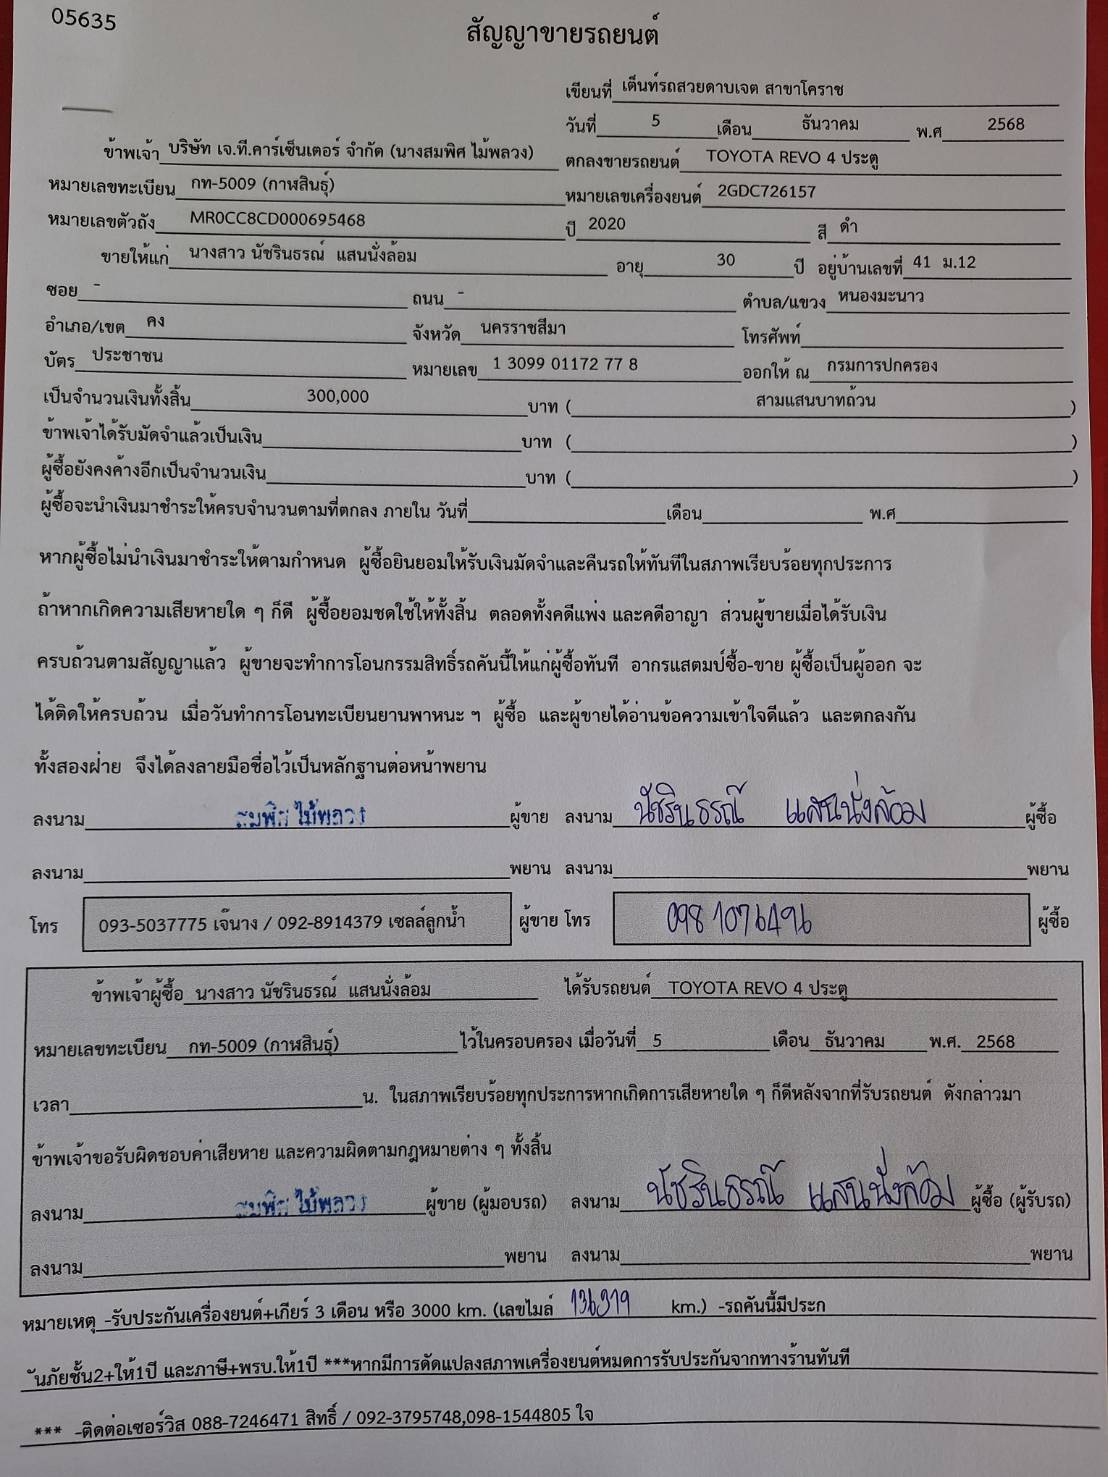 05635
สัญญาขายรถยนต์
เขียนที่ เต็นท์รถสวยดาบเจต สาขาโคราช
วันที่ 5 เดือน ธันวาคม พ.ศ 2568
ข้าพเจ้า บริษัท เจ.ที.คาร์เซ็นเตอร์ จำกัด (นางสมพิศ ไม้พลวง) ตกลงขายรถยนต์ TOYOTA REVO 4 ประตู
หมายเลขทะเบียน กท-5009 (กาฬสินธุ์) หมายเลขเครื่องยนต์ 2GDC726157
หมายเลขตัวถัง MR0CC8CD000695468 ปี 2020 สี ดำ
ขายให้แก่ นางสาว นัชรินธรณ์ แสนนั่งล้อม อายุ 30 ปี อยู่บ้านเลขที่ 41 ม.12
ซอย - ถนน - ตำบล/แขวง หนองมะนาว
อำเภอ/เขต คง จังหวัด นครราชสีมา โทรศัพท์
บัตร ประชาชน หมายเลข 1 3099 01172 77 8 ออกให้ ณ กรมการปกครอง
เป็นจำนวนเงินทั้งสิ้น 300,000 บาท ( สามแสนบาทถ้วน )
ข้าพเจ้าได้รับมัดจำแล้วเป็นเงิน บาท ( )
ผู้ซื้อยังคงค้างอีกเป็นจำนวนเงิน บาท ( )
ผู้ซื้อจะนำเงินมาชำระให้ครบจำนวนตามที่ตกลง ภายใน วันที่ เดือน พ.ศ
หากผู้ซื้อไม่นำเงินมาชำระให้ตามกำหนด ผู้ซื้อยินยอมให้รับเงินมัดจำและคืนรถให้ทันทีในสภาพเรียบร้อยทุกประการ
ถ้าหากเกิดความเสียหายใด ๆ ก็ดี ผู้ซื้อยอมชดใช้ให้ทั้งสิ้น ตลอดทั้งคดีแพ่ง และคดีอาญา ส่วนผู้ขายเมื่อได้รับเงิน
ครบถ้วนตามสัญญาแล้ว ผู้ขายจะทำการโอนกรรมสิทธิ์รถคันนี้ให้แก่ผู้ซื้อทันที อากรแสตมป์ซื้อ-ขาย ผู้ซื้อเป็นผู้ออก จะ
ได้ติดให้ครบถ้วน เมื่อวันทำการโอนทะเบียนยานพาหนะ ฯ ผู้ซื้อ และผู้ขายได้อ่านข้อความเข้าใจดีแล้ว และตกลงกัน
ทั้งสองฝ่าย จึงได้ลงลายมือชื่อไว้เป็นหลักฐานต่อหน้าพยาน
ลงนาม สมพิศ ไม้พลวง ผู้ขาย ลงนาม นัชรินธรณ์ แสนนั่งล้อม ผู้ซื้อ
ลงนาม พยาน ลงนาม พยาน
โทร 093-5037775 เจ๊นาง / 092-8914379 เซลล์ลูกน้ำ ผู้ขาย โทร 098 1076496 ผู้ซื้อ
ข้าพเจ้าผู้ซื้อ นางสาว นัชรินธรณ์ แสนนั่งล้อม ได้รับรถยนต์ TOYOTA REVO 4 ประตู
หมายเลขทะเบียน กท-5009 (กาฬสินธุ์) ไว้ในครอบครอง เมื่อวันที่ 5 เดือน ธันวาคม พ.ศ. 2568
เวลา น. ในสภาพเรียบร้อยทุกประการหากเกิดการเสียหายใด ๆ ก็ดีหลังจากที่รับรถยนต์ ดังกล่าวมา
ข้าพเจ้าขอรับผิดชอบค่าเสียหาย และความผิดตามกฎหมายต่าง ๆ ทั้งสิ้น
ลงนาม สมพิศ ไม้พลวง ผู้ขาย (ผู้มอบรถ) ลงนาม นัชรินธรณ์ แสนนั่งล้อม ผู้ซื้อ (ผู้รับรถ)
ลงนาม พยาน ลงนาม พยาน
หมายเหตุ -รับประกันเครื่องยนต์+เกียร์ 3 เดือน หรือ 3000 km. (เลขไมล์ 136319 km.) -รถคันนี้มีประก
ันภัยชั้น2+ให้1ปี และภาษี+พรบ.ให้1ปี ***หากมีการดัดแปลงสภาพเครื่องยนต์หมดการรับประกันจากทางร้านทันที
*** -ติดต่อเซอร์วิส 088-7246471 สิทธิ์ / 092-3795748,098-1544805 ใจ